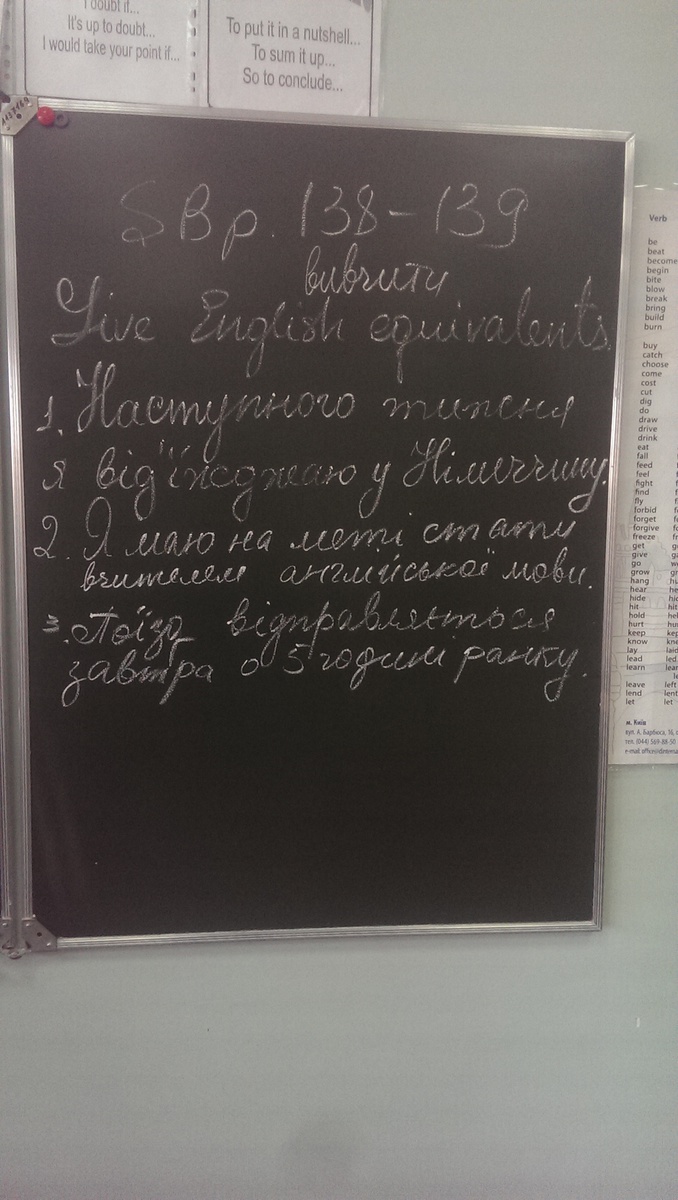 I doubt if...
It's up to doubt...
I would take your point if...
To put it in a nutshell...
To sum it up...
So to conclude...
SB p. 138-139
вивчити
Give English equivalents.
1. Наступного тижня
я від'їжджаю у Німеччину.
2. Я маю на меті стати
вчителем англійської мови.
3. Поїзд відправляється
завтра о 5 годині ранку.
Verb
be
beat
become
begin
bite
blow
break
bring
build
burn
buy
catch
choose
come
cost
cut
dig
do
draw
drive
drink
eat
fall
feed
feel
fight
find
fly
forbid
forget
forgive
freeze
get
give
go
grow
hang
hear
hide
hit
hold
hurt
keep
know
lay
lead
learn
leave left
lend lent
let let
м. Київ
вул. А. Барбюса,
тел. (044) 569-88-50